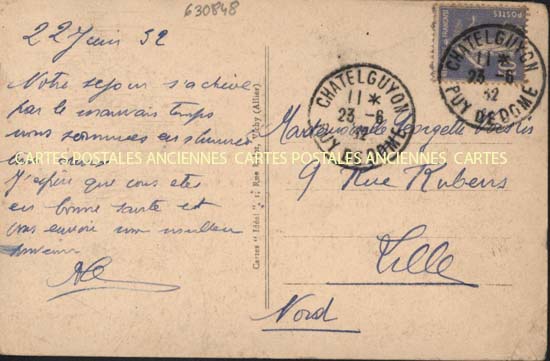 630848
22 Juin 32
Notre sejour s'achève
par le mauvais temps
nous sommes
J'espère que vous etes
en bonne santé et
vous envoie mon meilleur
souvenir
Cartes "Idéal"
Rue (Allier)
CHATELGUYON
11 *
23 -6
32
PUY DE DOME
POSTES
CHATELGUYON
11 *
23 -6
32
PUY DE DOME
Mademoiselle Georgette
9 Rue Rubens
Lille
Nord
CARTES POSTALES ANCIENNES CARTES POSTALES ANCIENNES CARTES POSTALES ANCIENNES